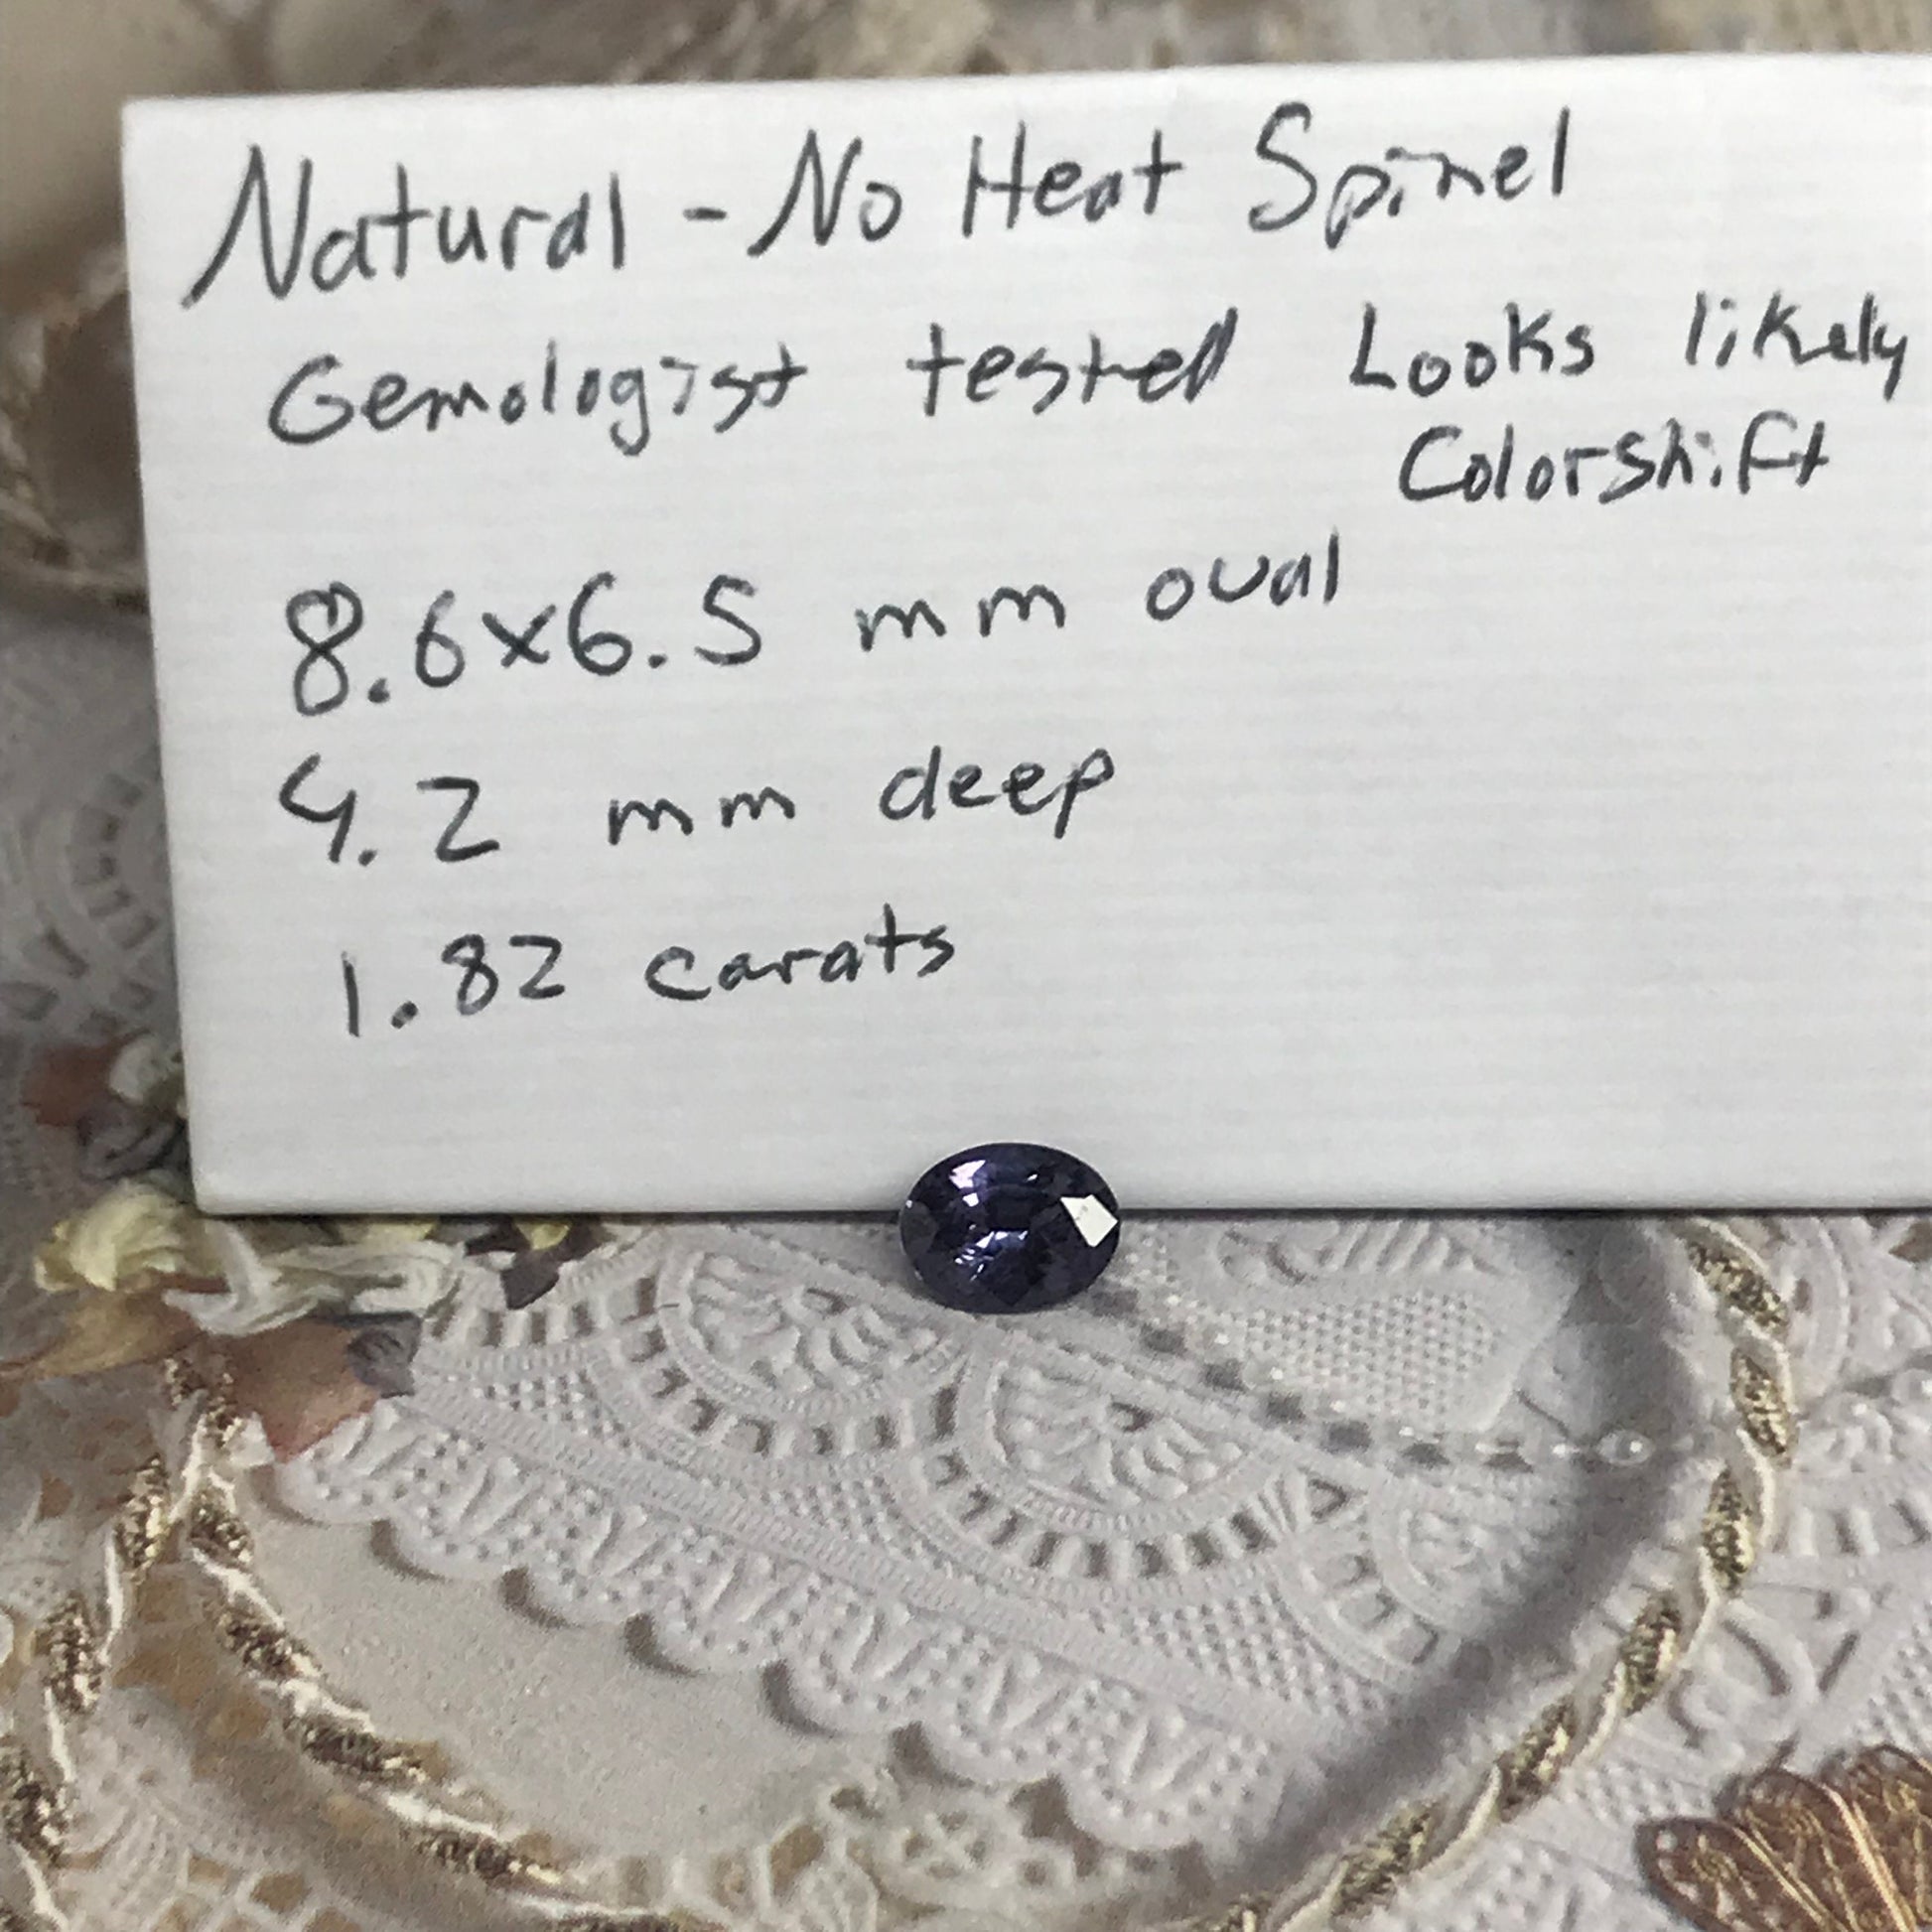 Natural - No Heat Spinel
Gemologist tested Looks likely
Colorshift
8.6x6.5 mm oval
4.2 mm deep
1.82 carats